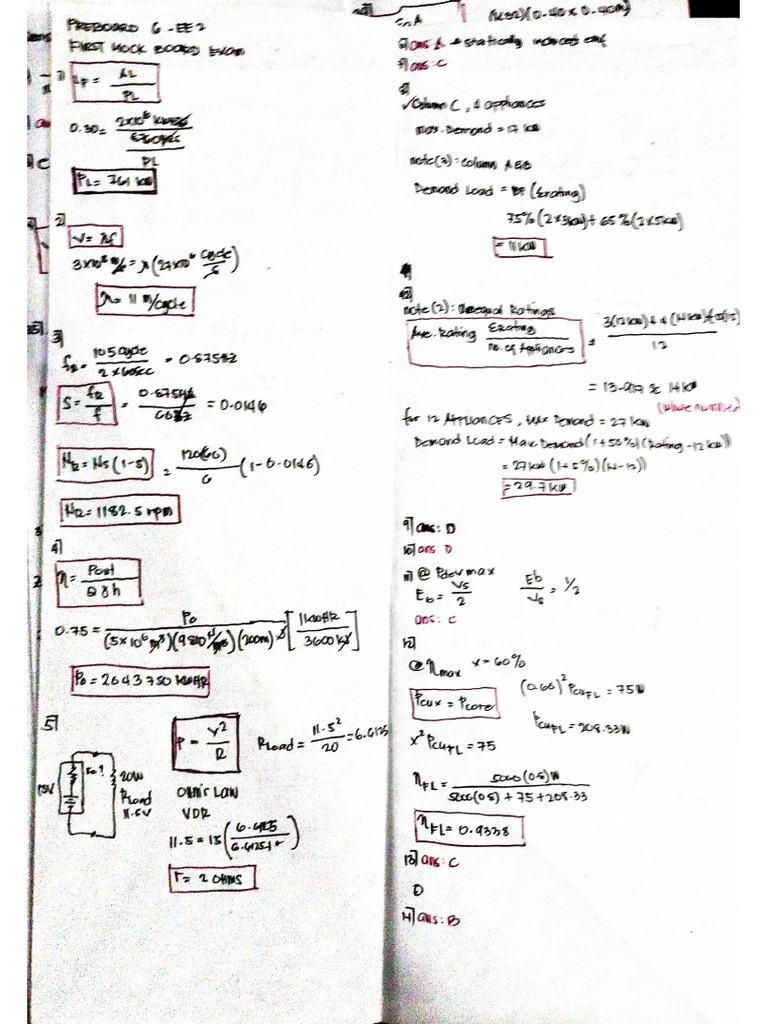 PREBOARD 6 - EE2
FIRST MOCK BOARD EXAM
1]
LF = AL / PL
0.30 = 2x10⁶ / 8760 / PL
PL = 761 kW
2]
v = λf
3x10⁸ m/s = λ(27x10⁶ cycle/s)
λ = 11 m/cycle
3]
fR = 105 cycle / 2 x 60sec = 0.875Hz
S = fR / f = 0.875Hz / 60Hz = 0.0146
NR = NS (1-S) = 120(60) / 6 (1-0.0146)
NR = 1182.5 rpm
4]
η = Pout / QƔh
0.75 = Po / (5x10⁶ m³)(9810 N/m³)(200m) [1kWHR / 3600 kJ]
Po = 2043750 kWHR
5]
P = V² / R
RLoad = 11.5² / 20 = 6.6125
15V
r = ?
20W
RLoad
11.5V
OHM'S LAW
VDR
11.5 = 15 (6.6125 / 6.6125+r)
r = 2 OHMS
(0.40 x 0.40m)
6] ans A → statically induced emf
7] ans: C
8]
✓ Column C, 4 appliances
max. Demand = 17 kW
note (3): Column A & B
Demand Load = DF (Σrating)
75% (2x3kW) + 65% (2x5kW)
= 11kW
note (2): Unequal Ratings
Ave. Rating ΣRating / no. of Appliances = 12
= 13.917 ≈ 14kW
(whole number)
for 12 APPLIANCES, Max Demand = 27 kW
Demand Load = Max Demand (1+5%)(Rating - 12 kW))
= 27kW (1+5%)(14-12))
= 29.7 kW
9] ans: D
10] ans D
11] @ Pdev max
Eb = Vs / 2
Eb / Vs = 1/2
ans: C
12]
@ ηmax x = 60%
Pcux = Pcore
(0.60)² PcuFL = 75W
PcuFL = 208.33W
x² PcuFL = 75
ηFL = 5000(0.8)W / 5000(0.8) + 75 + 208.33
ηFL = 0.9338
13] ans: C
D
14] ans: B